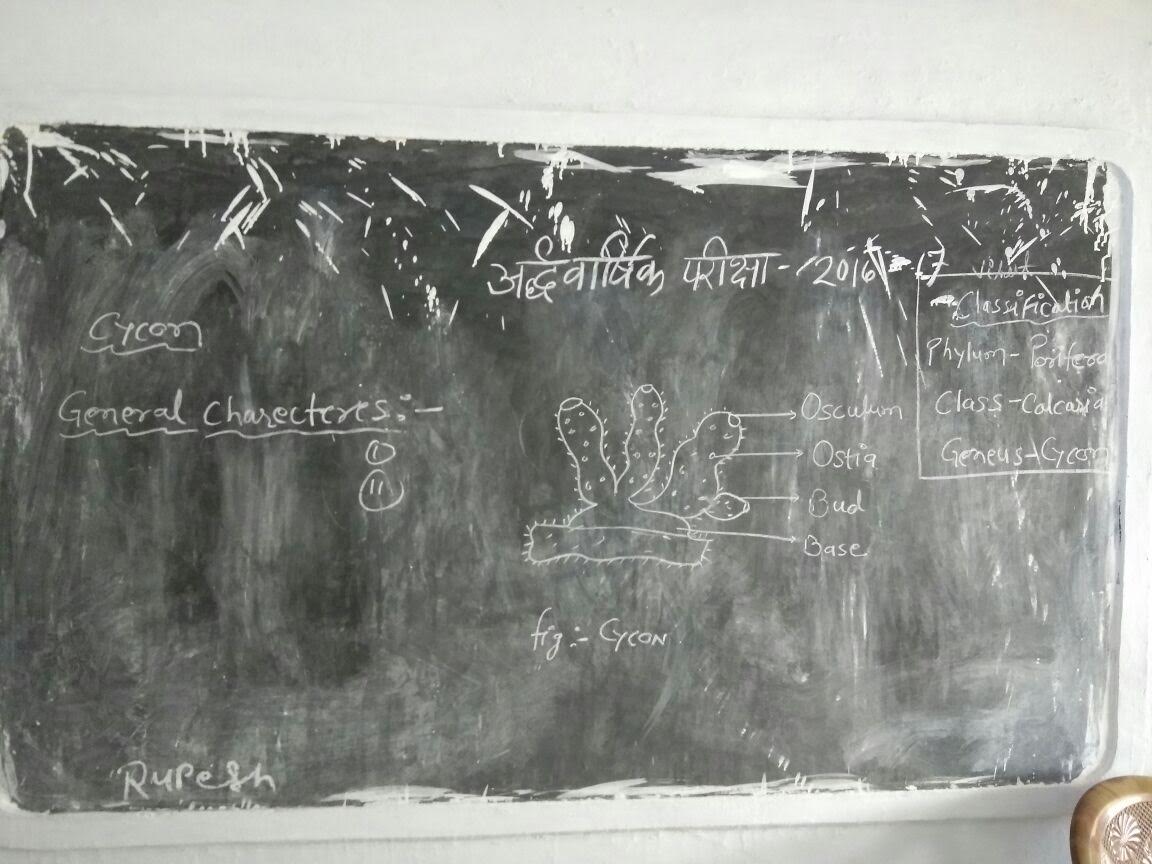 अर्द्धवार्षिक परीक्षा - 2016-17
Cycon
General Charecteres:-
(i)
(ii)
Osculum
Ostia
Bud
Base
fig:- CYCON
Classification
Phylum- Porifera
Class-Calcaria
Geneus-Cycon
RUPESh